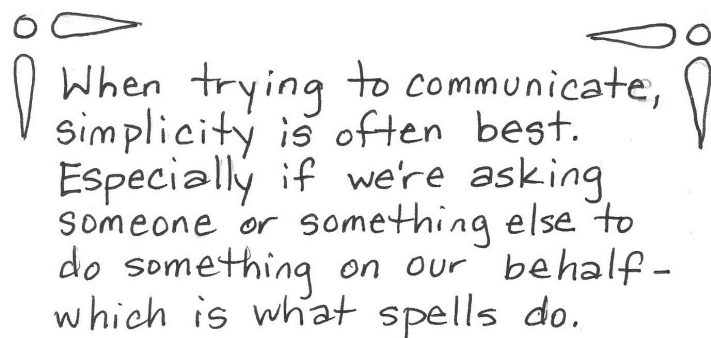 When trying to communicate,
simplicity is often best.
Especially if we're asking
someone or something else to
do something on our behalf-
which is what spells do.